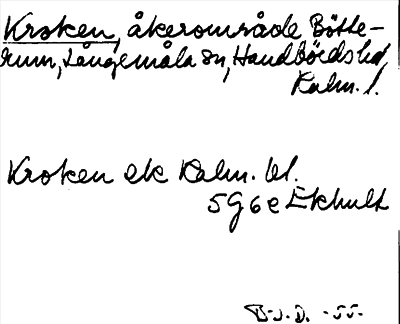 Kroken, åkerområde Bötte-
rum, Långemåla sn, Handbörds hd,
Kalm. l.
Kroken ek Kalm. bl.
5G 6e Ekhult
B-J.D. -55-